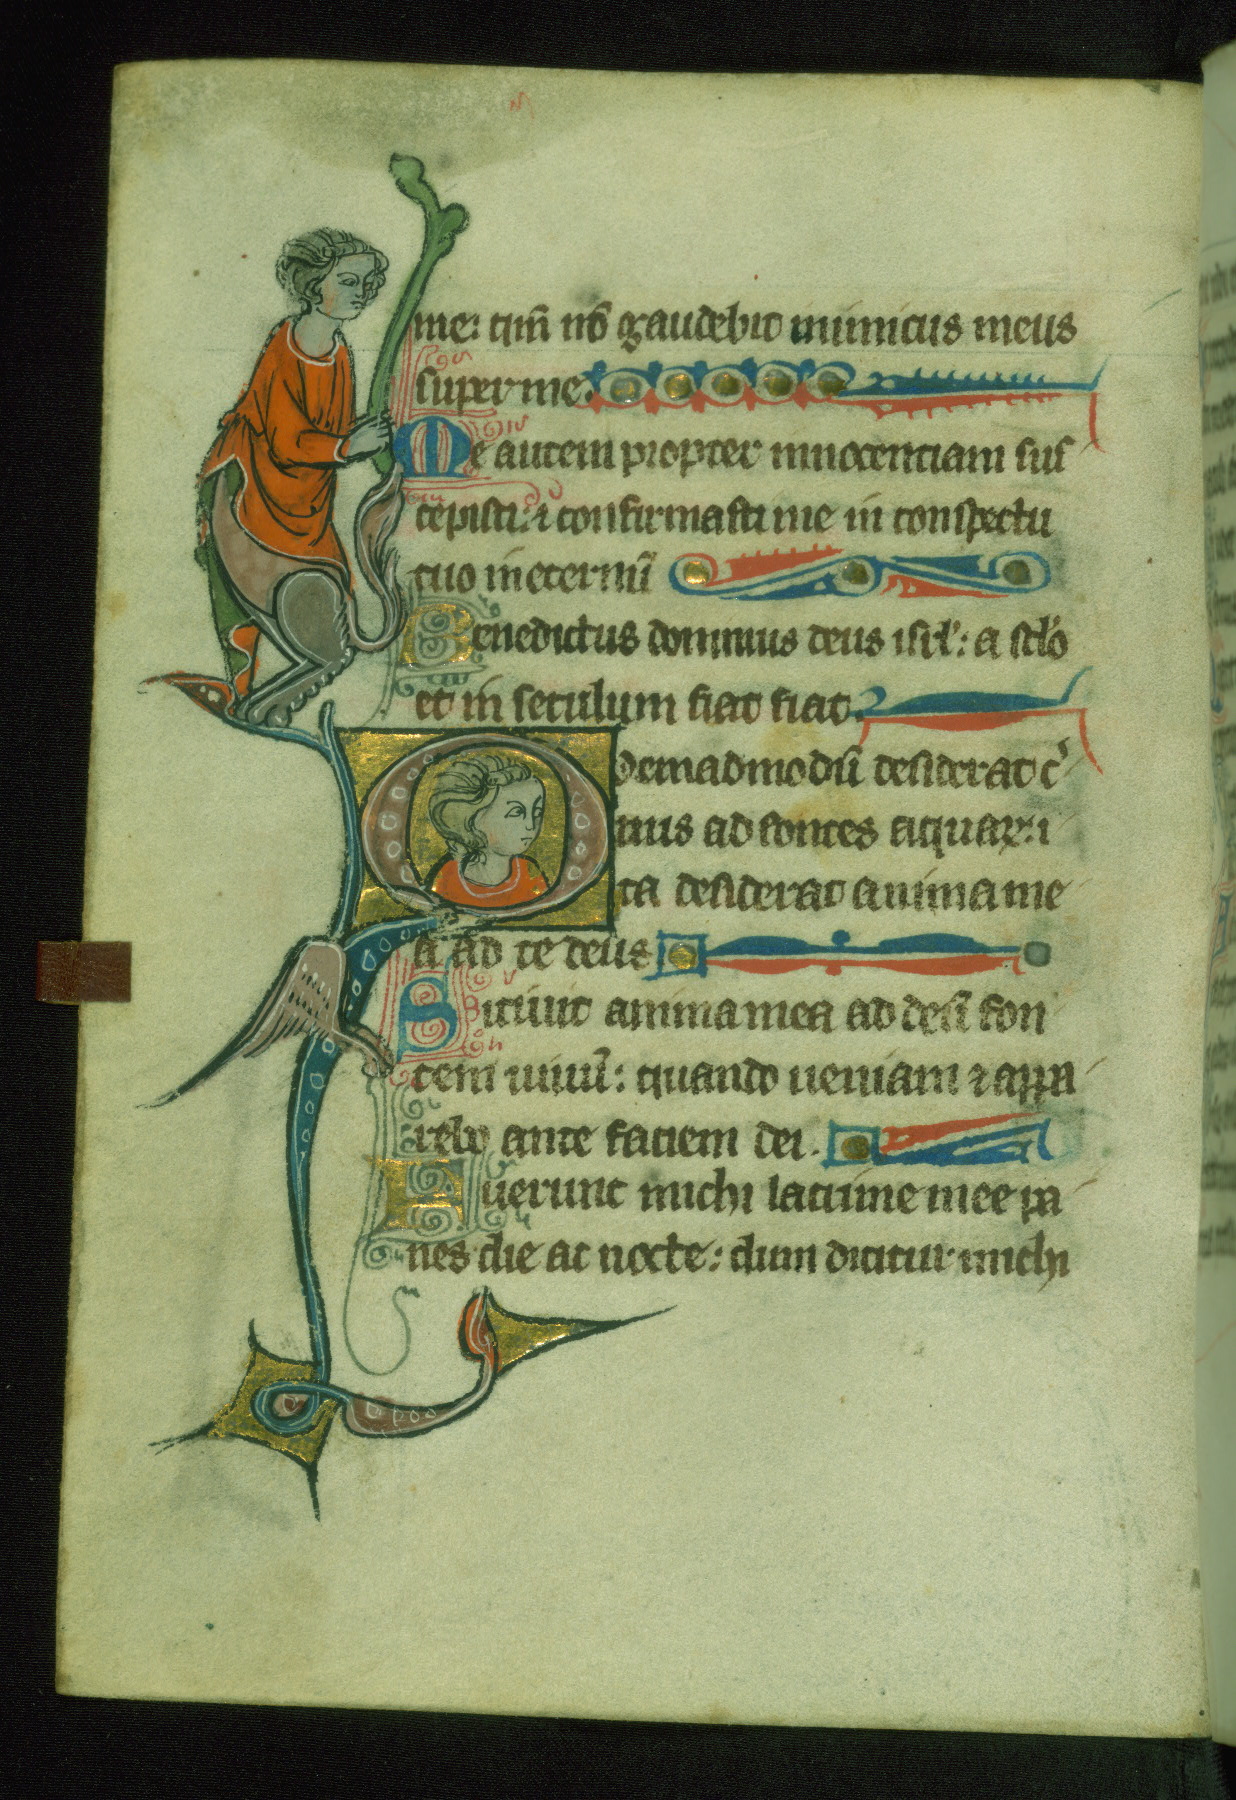 me: qm̄ nō gaudebit inimicus meus
super me.
Me autem propter innocentiam sus
cepisti: ⁊ confirmasti me in conspectu
tuo in eternū
Benedictus dominus deus isrl̓: a sclo
et in seculum fiat fiat.
Quemadmodū desiderat c̓
uus ad fontes aquarꝫ: i
ta desiderat anima me
a ad te deus
Sitiuit anima mea ad deū fon
tem uiuū: quando ueniam ⁊ appa
rebo ante faciem dei.
Fuerunt michi lacrime mee pa
nes die ac nocte: dum dicitur michi